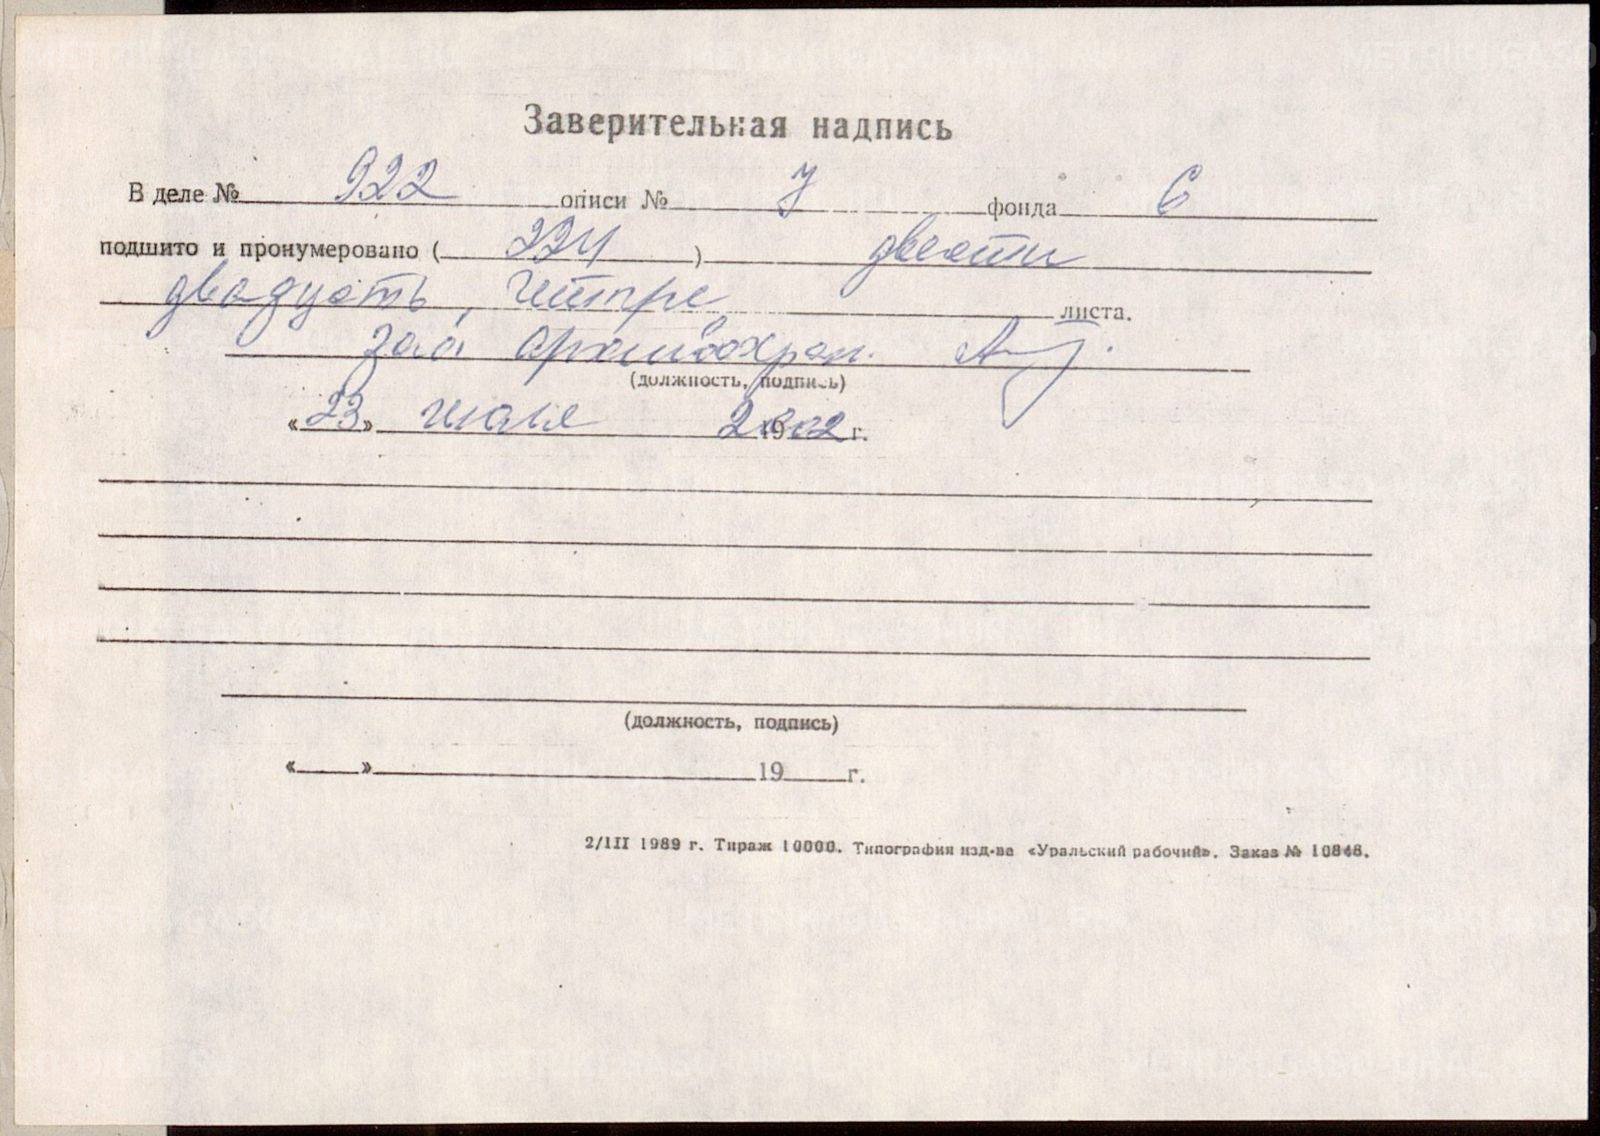 Заверительная надпись
В деле № 922 описи № 7 фонда 6
подшито и пронумеровано ( 224 ) двести
двадцать, четыре листа.
зав. архивохран.
(должность, подпись)
«23» июля 2002 г.
(должность, подпись)
« » 19 г.
2/III 1989 г. Тираж 10000. Типография изд-ва «Уральский рабочий». Заказ № 10848.